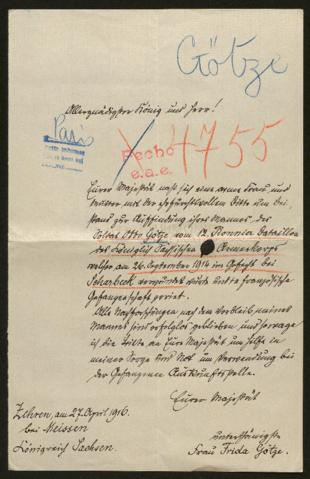 Götze
Allergnädigster König und Herr!
Pasi
4755
Recho
e.a.e.
Eurer Majestät naht sich eine arme Frau und
Mutter mit der ehrfurchtsvollen Bitte ihr bei-
stehen zur Auffindung ihres Mannes, des
Soldat Otto Götze vom 12. Pionnier Bataillon
des Königlich Sächsischen Armeekorps
welcher am 26. September 1914 im Gefecht bei
verwundet wurde und in französische
Gefangenschaft geriet.
Alle Nachforschungen nach dem Verbleib meines
Mannes sind erfolglos geblieben, und so wage
ich die Bitte an Eure Majestät um Hilfe in
meiner Sorge und Not um Verwendung bei
der Gefangenen Auskunftsstelle.
Eurer Majestät
Zehren, am 27. April 1916.
bei Meissen
Königreich Sachsen.
unterthänigste
Frau Frida Götze.